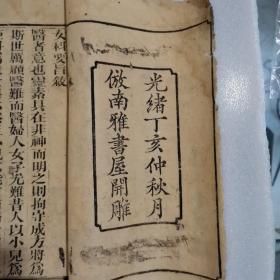 光緒丁亥仲秋月
倣南雅書屋開雕
女科要旨敘
醫者意也靈素具在非神而明之則拘守成方將為
斯世厲顧醫難而醫婦人女子尤難昔人以小兒為